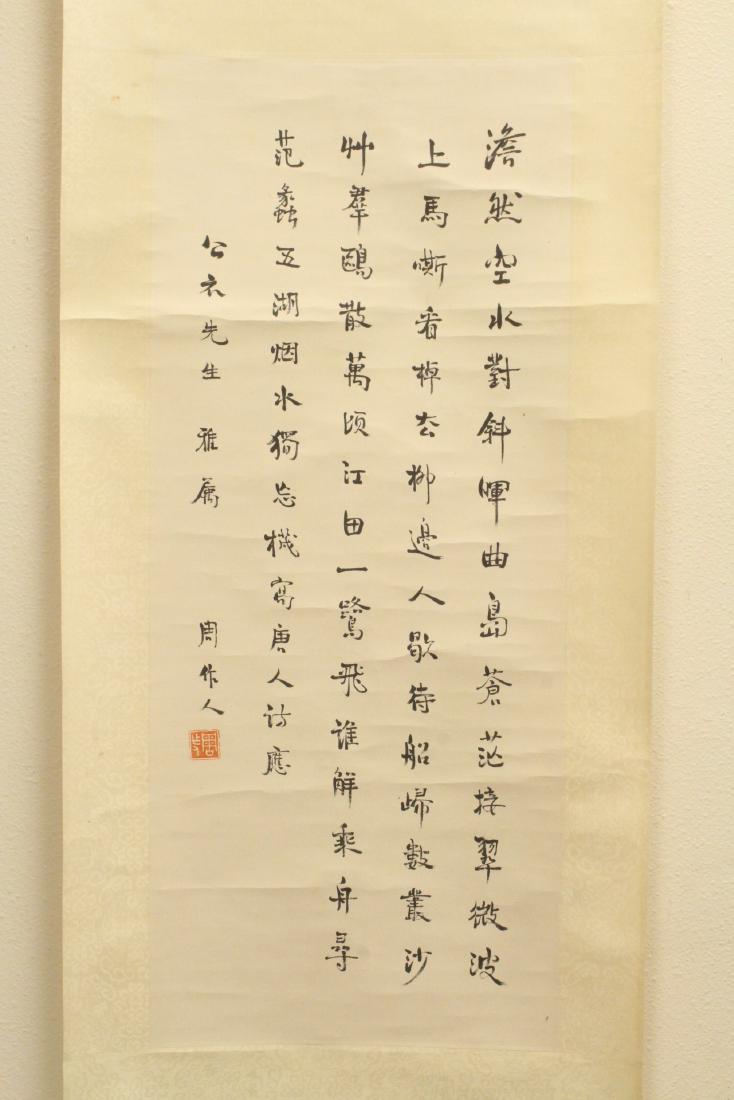 澹然空水對斜暉曲島蒼茫接翠微波
上馬嘶看棹去柳邊人歇待船歸數叢沙
艸羣鷗散萬頃江田一鷺飛誰解乘舟尋
范蠡五湖烟水獨忘機寫唐人詩應
公衣先生 雅屬
周作人